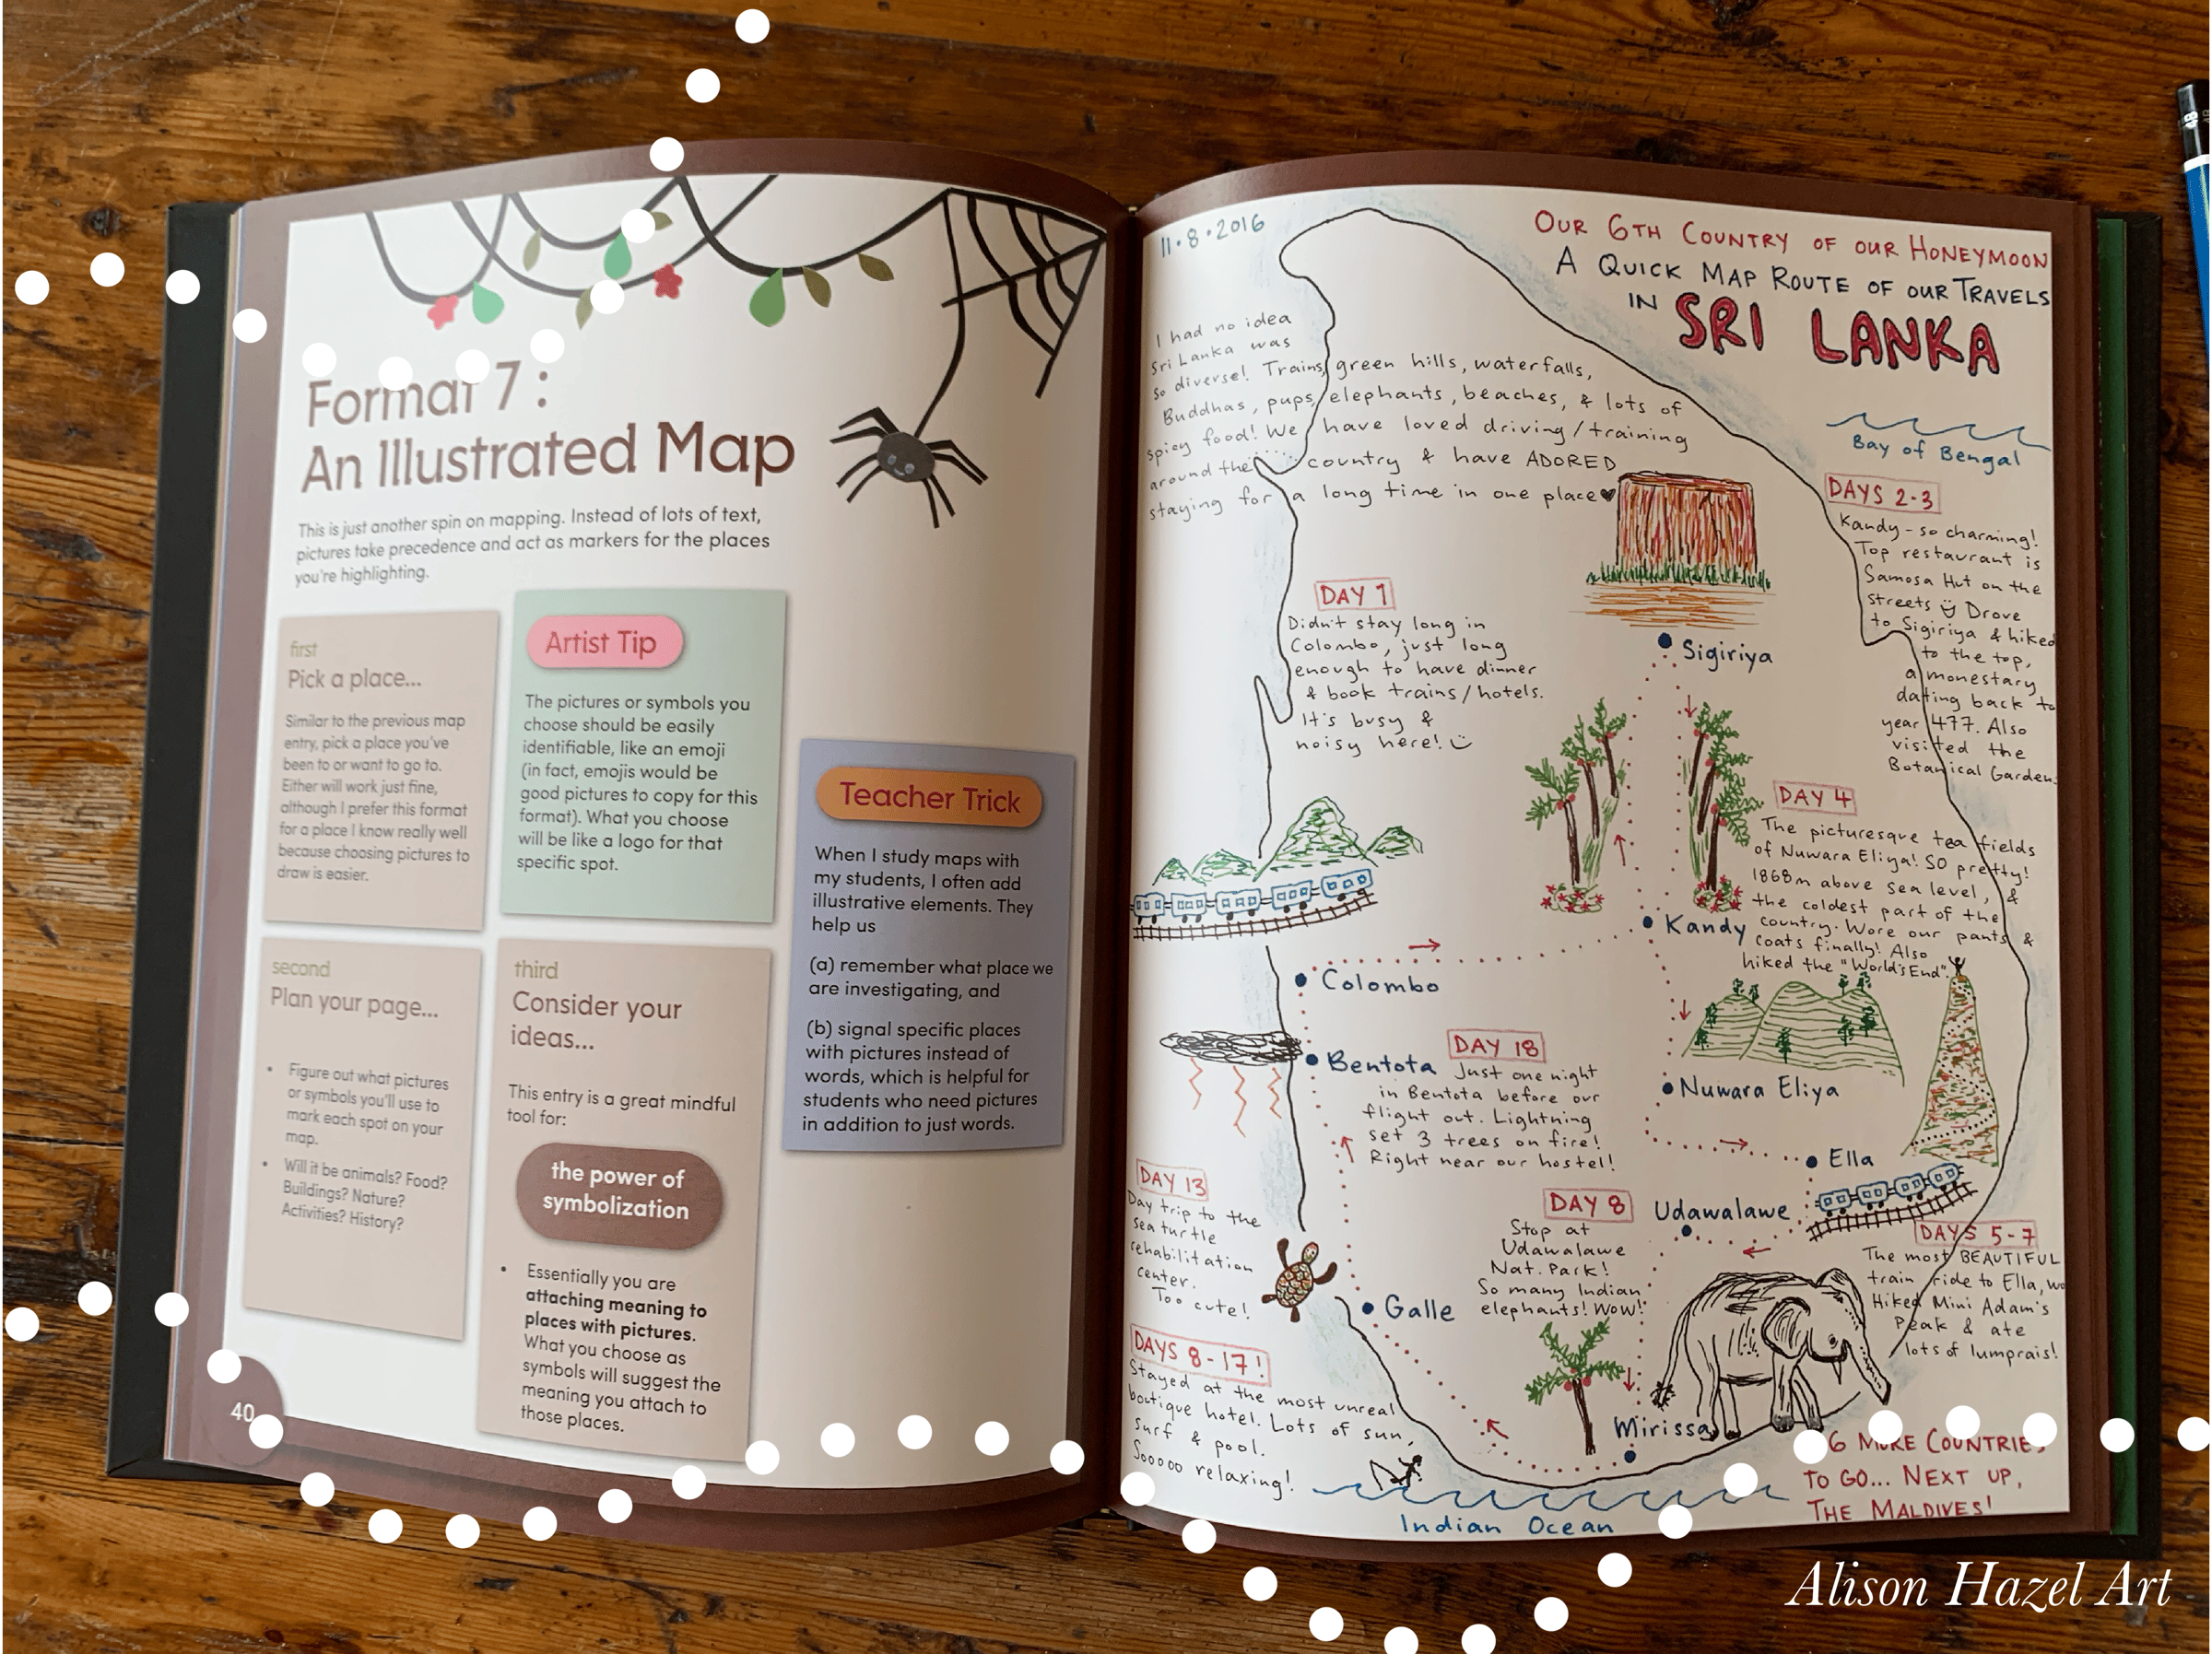 Format 7 :
An Illustrated Map
This is just another spin on mapping. Instead of lots of text,
pictures take precedence and act as markers for the places
you're highlighting.
first
Pick a place...
Similar to the previous map
entry, pick a place you've
been to or want to go to.
Either will work just fine,
although I prefer this format
for a place I know really well
because choosing pictures to
draw is easier.
Artist Tip
The pictures or symbols you
choose should be easily
identifiable, like an emoji
(in fact, emojis would be
good pictures to copy for this
format). What you choose
will be like a logo for that
specific spot.
Teacher Trick
When I study maps with
my students, I often add
illustrative elements. They
help us
(a) remember what place we
are investigating, and
(b) signal specific places
with pictures instead of
words, which is helpful for
students who need pictures
in addition to just words.
second
Plan your page...
• Figure out what pictures
or symbols you'll use to
mark each spot on your
map.
• Will it be animals? Food?
Buildings? Nature?
Activities? History?
third
Consider your
ideas...
This entry is a great mindful
tool for:
the power of
symbolization
• Essentially you are
attaching meaning to
places with pictures.
What you choose as
symbols will suggest the
meaning you attach to
those places.
40
11·8·2016
OUR 6TH COUNTRY OF OUR HONEYMOON
A QUICK MAP ROUTE OF OUR TRAVELS
IN SRI LANKA
I had no idea
Sri Lanka was
so diverse! Trains, green hills, waterfalls,
Buddhas, pups, elephants, beaches, & lots of
spicy food! We have loved driving/training
around the country & have ADORED
staying for a long time in one place♥
Bay of Bengal
DAYS 2-3
Kandy - so charming!
Top restaurant is
Samosa Hut on the
streets Drove
to Sigiriya & hiked
to the top,
a monestary
dating back to
year 477. Also
visited the
Botanical Garden.
DAY 1
Didn't stay long in
Colombo, just long
enough to have dinner
& book trains/hotels.
It's busy &
noisy here!
Sigiriya
DAY 4
The picturesque tea fields
of Nuwara Eliya! SO pretty!
1868m above sea level, &
the coldest part of the
country. Wore our pants &
coats finally! Also
hiked the "World's End".
Kandy
Colombo
Bentota
DAY 18
Just one night
in Bentota before our
flight out. Lightning
set 3 trees on fire!
Right near our hostel!
Nuwara Eliya
Ella
DAYS 5-7
The most BEAUTIFUL
train ride to Ella, we
Hiked Mini Adam's
Peak & ate
lots of lumprais!
Udawalawe
DAY 8
Stop at
Udawalawe
Nat. Park!
So many Indian
elephants! WOW!
DAY 13
Day trip to the
sea turtle
rehabilitation
center.
Too cute!
Galle
DAYS 8-17!
Stayed at the most unreal
boutique hotel. Lots of sun,
surf & pool.
Sooooo relaxing!
Mirissa
Indian Ocean
6 MORE COUNTRIES
TO GO... NEXT UP,
THE MALDIVES!
Alison Hazel Art